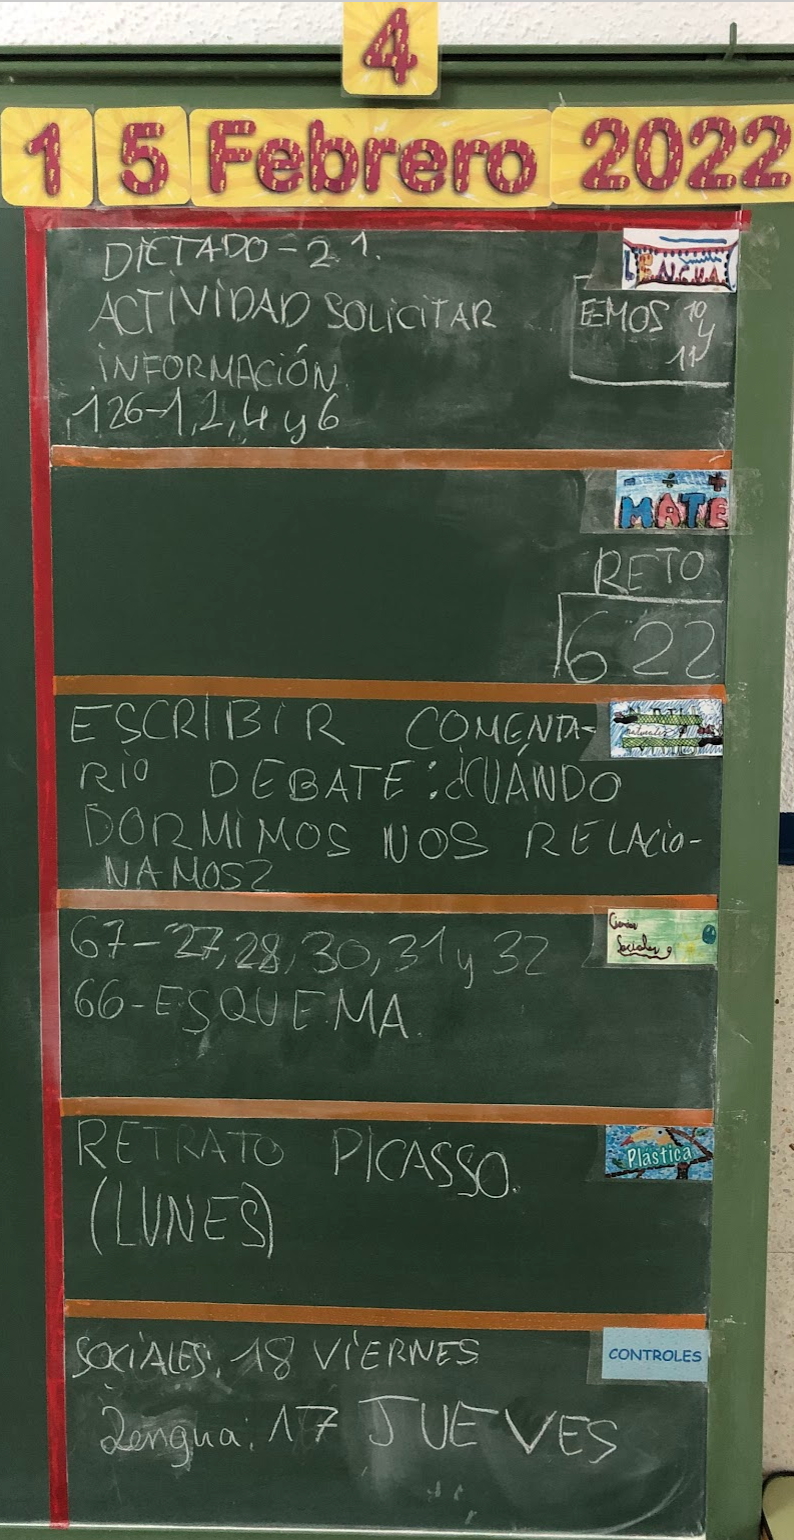 4
15 Febrero 2022
DICTADO - 21.
LENGUA
ACTIVIDAD SOLICITAR
INFORMACIÓN
126-1,2,4 y 6
EEMOS 10
y
11
MATE
RETO
622
ESCRIBIR COMENTA-
RIO DEBATE: ¿CUÁNDO
DORMIMOS NOS RELACIO-
NAMOS?
67-27,28,30,31 y 32
66-ESQUEMA.
Ciencias
Sociales
RETRATO PICASSO.
(LUNES)
Plástica
CONTROLES
SOCIALES: 18 VIERNES
Lengua: 17 JUEVES